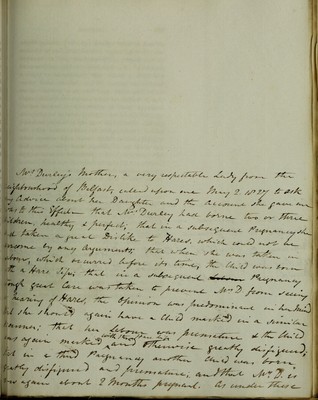 Mrs. Durley's Mother, a very respectable Lady from the
neighbourhood of Belfast, called upon me May 2. 1827 to ask
my advice about her Daughter and the account she gave me
was to this effect that Mrs. Durley had borne two or three
children, healthy & perfect, that in a subsequent Pregnancy she
had taken a great Dislike to Hares, which could not be
overcome by any Arguments, that when she was taken in
Labour, which occurred before its time, the Child was born
with a Hare lip; that in a subsequent Pregnancy
though great care was taken to prevent Mrs. D. from seeing
or hearing of Hares, the Opinion was predominant in her Mind
that she should again have a Child marked in a similar
manner; that her Labour was premature & the Child
was again marked with the hare lip and otherwise greatly disfigured;
that in a third Pregnancy another Child was born
greatly disfigured and premature, and that Mrs. D. is
now again about 2 Months pregnant. As under these